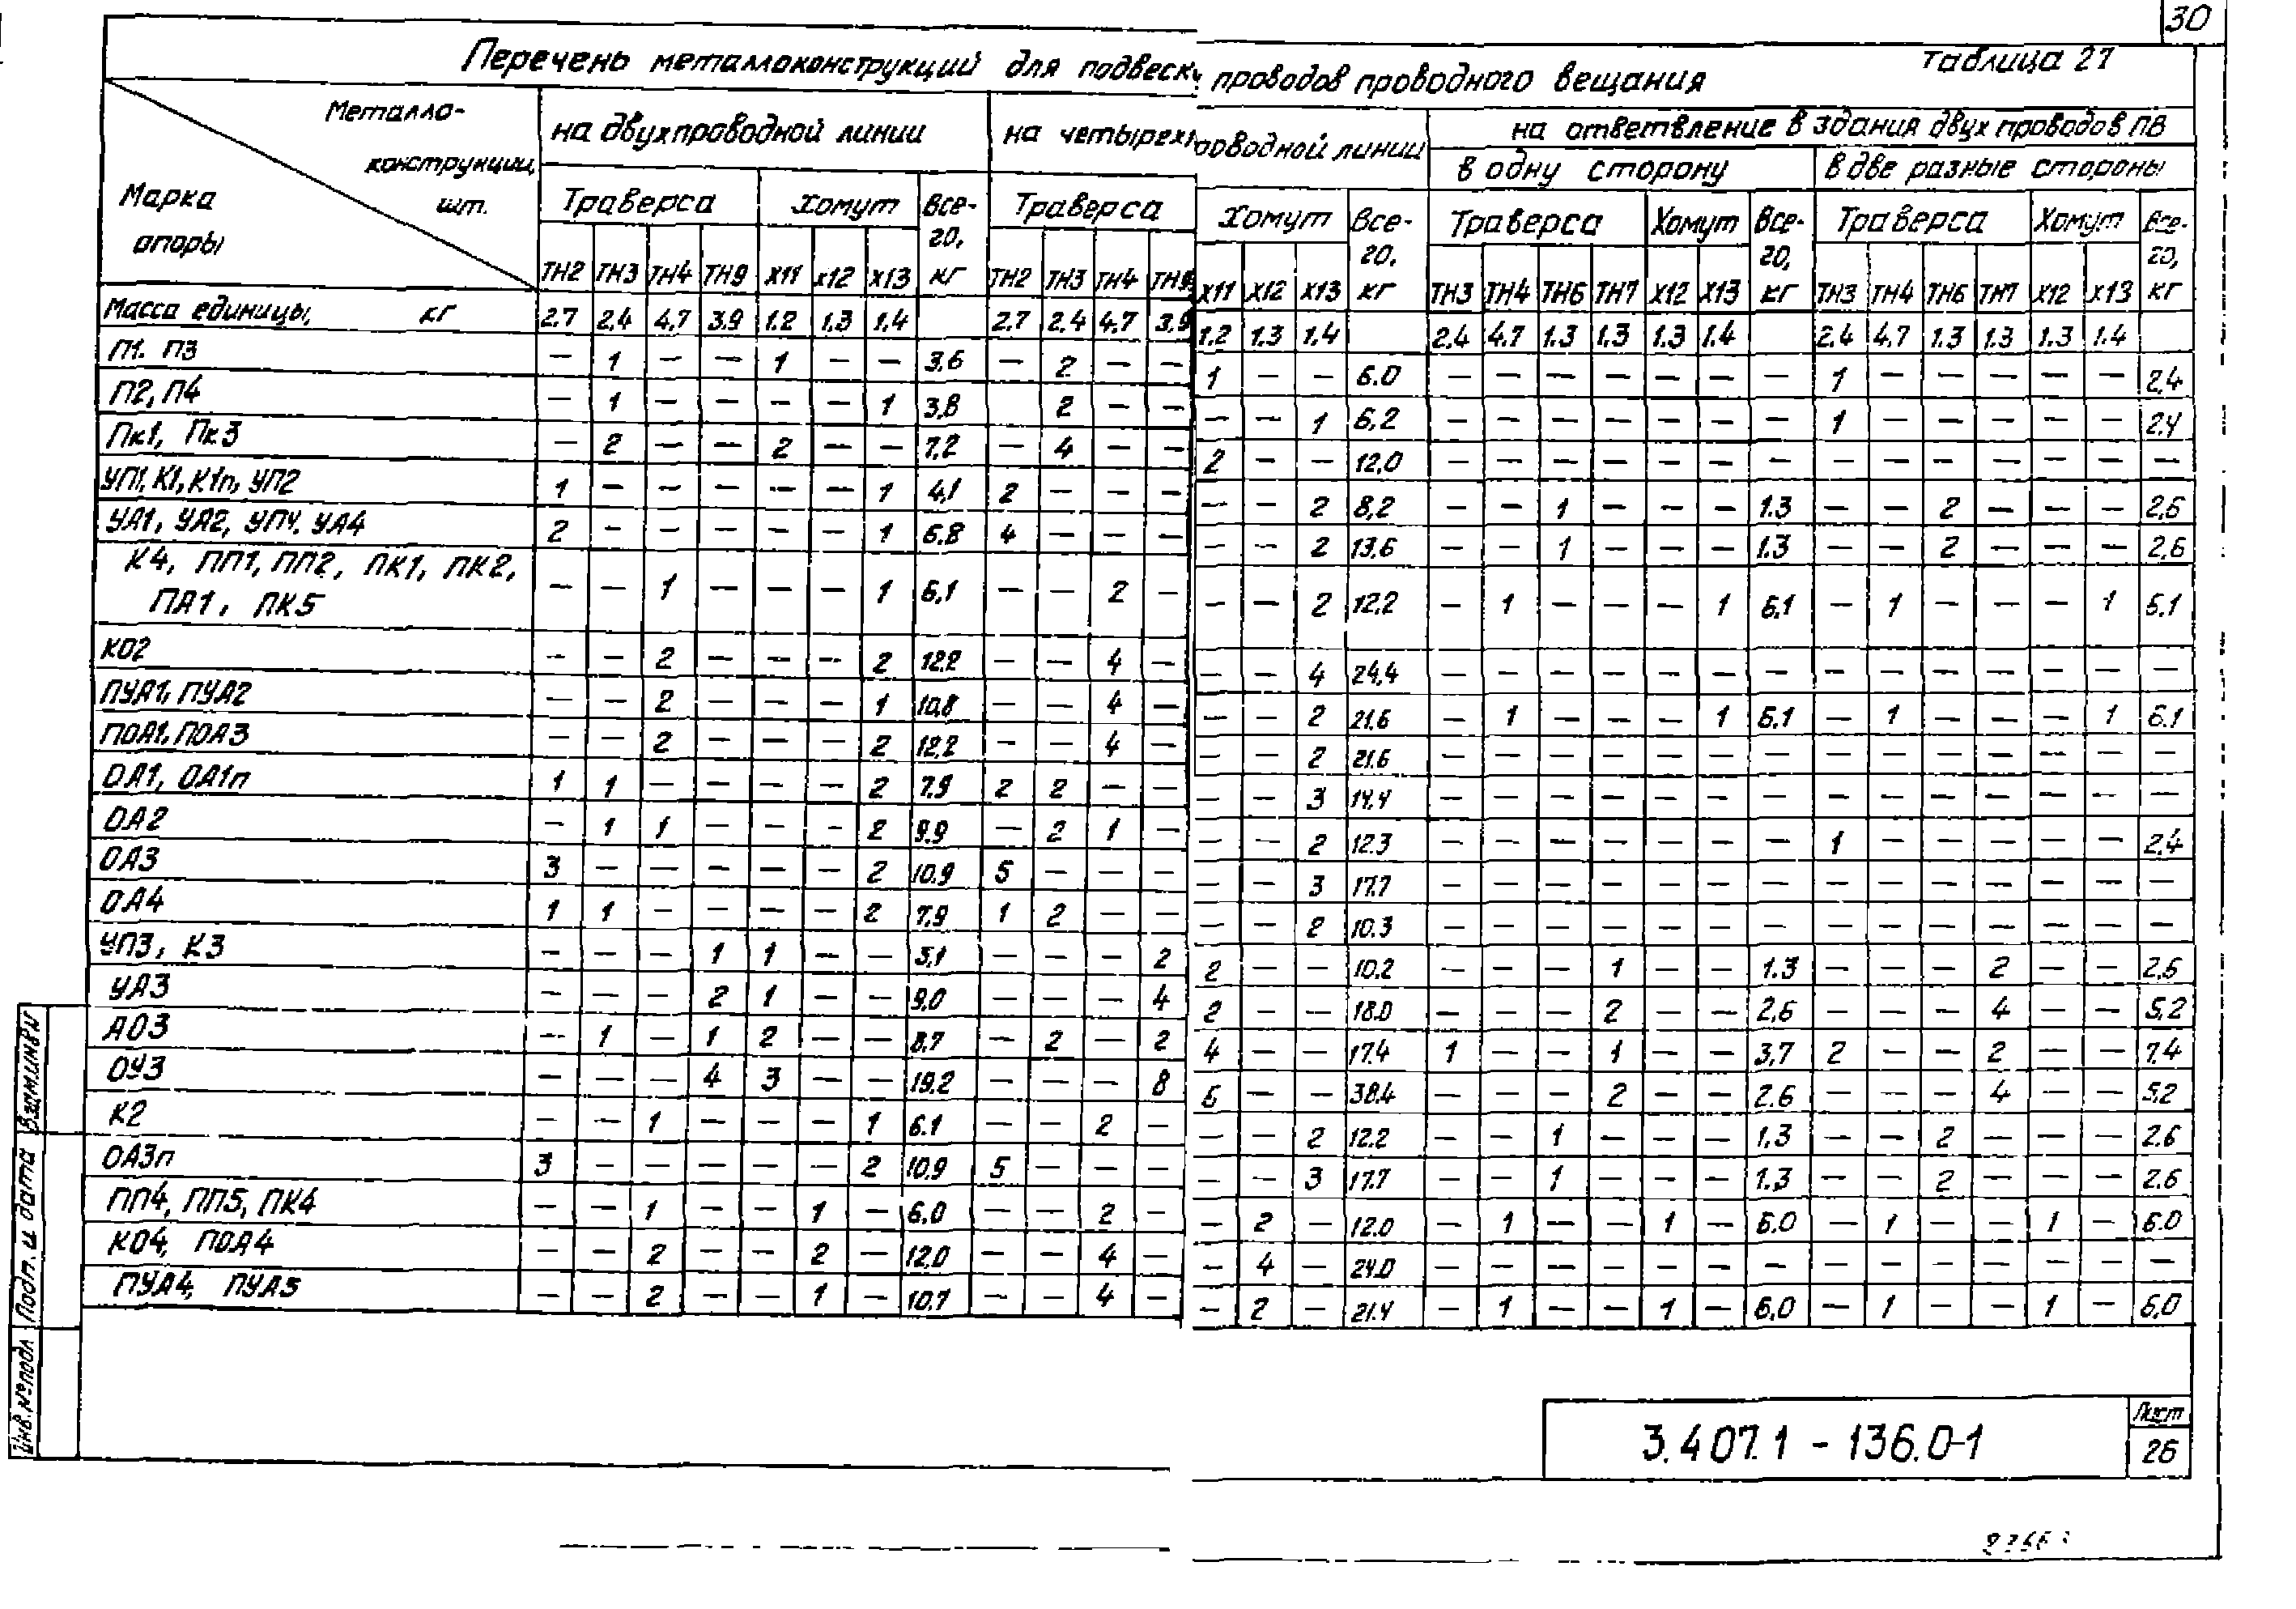 30
Таблица 27
Перечень металлоконструкций для подвески проводов проводного вещания
Металло-конструкции, шт.
Марка опоры
на двухпроводной линии
на четырехпроводной линии
на ответвление в здания двух проводов ПВ
в одну сторону
в две разные стороны
Траверса Хомут Все-го, кг Траверса Хомут Все-го, кг Траверса Хомут Все-го, кг Траверса Хомут Все-го, кг
ТН2 ТН3 ТН4 ТН9 Х11 Х12 Х13 ТН2 ТН3 ТН4 ТН9 Х11 Х12 Х13 ТН3 ТН4 ТН6 ТН7 Х12 Х13 ТН3 ТН4 ТН6 ТН7 Х12 Х13
Масса единицы, кг 2.7 2.4 4.7 3.9 1.2 1.3 1.4 2.7 2.4 4.7 3.9 1.2 1.3 1.4 2.4 4.7 1.3 1.3 1.3 1.4 2.4 4.7 1.3 1.3 1.3 1.4
П1. П3 — 1 — — 1 — — 3,6 — 2 — — 1 — — 6.0 — — — — — — — 1 — — — — — 2,4
П2, П4 — 1 — — — — 1 3,8 2 — — — — 1 6,2 — — — — — — — 1 — — — — — 2,4
Пк1, Пк3 — 2 — — 2 — — 7,2 — 4 — — 2 — — 12,0 — — — — — — — — — — — — — —
УП1, К1, К1п, УП2 1 — — — — — 1 4,1 2 — — — — — 2 8,2 — — 1 — — — 1.3 — — 2 — — — 2,6
УА1, УА2, УП4, УА4 2 — — — — — 1 6.8 4 — — — — — 2 13.6 — — 1 — — — 1.3 — — 2 — — — 2,6
К4, ПП1, ПП2, ПК1, ПК2,
ПА1, ПК5 — — 1 — — — 1 6,1 — — 2 — — — 2 12,2 — 1 — — — 1 6,1 — 1 — — — 1 6,1
КО2 — — 2 — — — 2 12,2 — — 4 — — — 4 24,4 — — — — — — — — — — — — — —
ПУА1, ПУА2 — — 2 — — — 1 10,8 — — 4 — — — 2 21,6 — 1 — — — 1 6.1 — 1 — — — 1 6.1
ПОА1, ПОА3 — — 2 — — — 2 12,2 — — 4 — — — 2 21.6 — — — — — — — — — — — — — —
ОА1, ОА1п 1 1 — — — — 2 7.9 2 2 — — — — 3 14.4 — — — — — — — — — — — — — —
ОА2 — 1 1 — — - 2 9.9 — 2 1 — — — 2 12.3 — — — — — — — 1 — — — — — 2,4
ОА3 3 — — — — — 2 10.9 5 — — — — — 3 17.7 — — — — — — — — — — — — — —
ОА4 1 1 — — — — 2 7,9 1 2 — — — — 2 10.3 — — — — — — — — — — — — — —
УП3, К3 — — — 1 1 — — 5,1 — — — 2 2 — — 10.2 — — — 1 — — 1.3 — — — 2 — — 2,6
УА3 — — — 2 1 — — 9,0 — — — 4 2 — — 18.0 — — — 2 — — 2,6 — — — 4 — — 5,2
АО3 — 1 — 1 2 — — 8,7 — 2 — 2 4 — — 17.4 1 — — 1 — — 3,7 2 — — 2 — — 7.4
ОУ3 — — — 4 3 — — 19.2 — — — 8 6 — — 38.4 — — — 2 — — 2.6 — — — 4 — — 5,2
К2 — — 1 — — — 1 6.1 — — 2 — — — 2 12.2 — — 1 — — — 1.3 — — 2 — — — 2.6
ОА3п 3 — — — — — 2 10,9 5 — — — — — 3 17.7 — — 1 — — — 1.3 — — 2 — — — 2.6
ПП4, ПП5, ПК4 — — 1 — — 1 — 6.0 — — 2 — — 2 — 12.0 — 1 — — 1 — 6.0 — 1 — — 1 — 6.0
КО4, ПОА4 — — 2 — — 2 — 12,0 — — 4 — — 4 — 24.0 — — — — — — — — — — — — — —
ПУА4, ПУА5 — — 2 — — 1 — 10.7 — — 4 — — 2 — 21.4 — 1 — — 1 — 6,0 — 1 — — 1 — 6,0
Инв.№подл Подп. и дата Взам.инв№
3.407.1 - 136.0-1
Лист
26